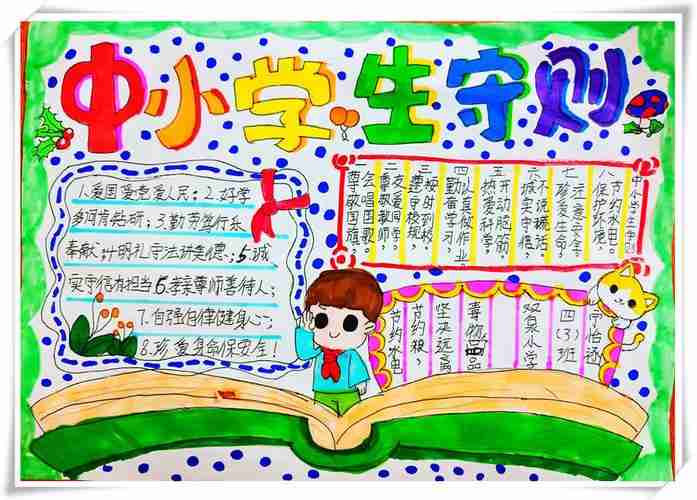 中小学生守则
1.爱国爱党爱人民:2.好学
多问肯钻研;3.勤劳笃行乐
奉献;4.明礼守法讲美德:5诚
实守信有担当6.孝亲尊师善待人;
7.自强自律健身心:
8.珍爱生命保安全!
中小学生守则
八节约水电。
保护环境。
七注意安全。
珍爱生命。
六不说谎话。
诚实守信。
五开动脑筋。
热爱科学
四认真做作业。
勤奋学习
三按时到校。
遵守校规。
二友爱同学。
尊敬教师。
一会唱国歌。
尊敬国旗。
四(3)班
双泉小学
坚决远离
节约粮,
节约水电